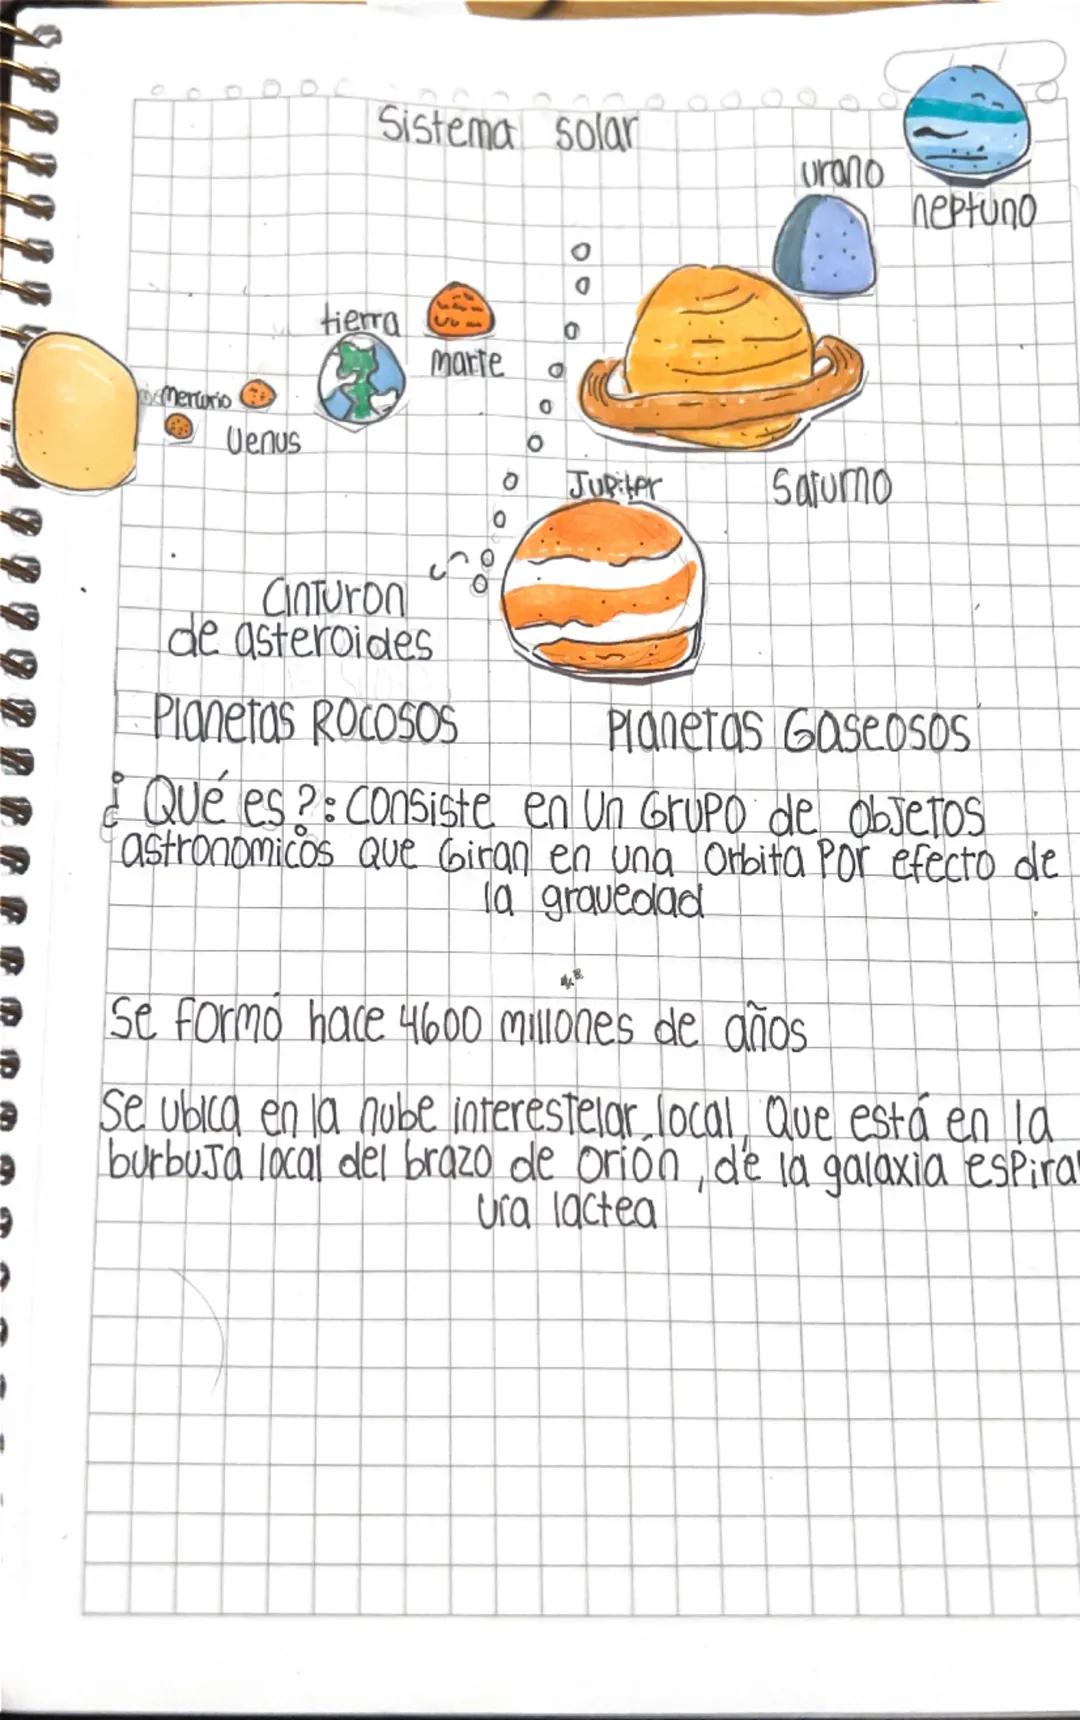 Sistema solar
urano
neptuno
tierra
marte
Mercurio
Venus
Jupiter
Saturno
Cinturon
de asteroides
Planetas Rocosos
Planetas Gaseosos
¿Qué es?: Consiste en un Grupo de objetos
astronomicos que Giran en una orbita Por efecto de
la gravedad
Se formó hace 4600 millones de años
Se ubica en la nube interestelar local, Que está en la
burbuja local del brazo de orión, de la galaxia espiral
vra lactea